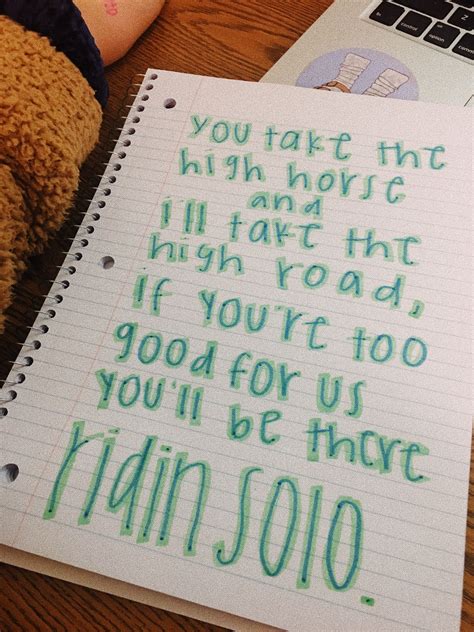 you take the
high horse
and
i'll take the
high road,
If you're too
good for us
you'll be there
ridin solo.